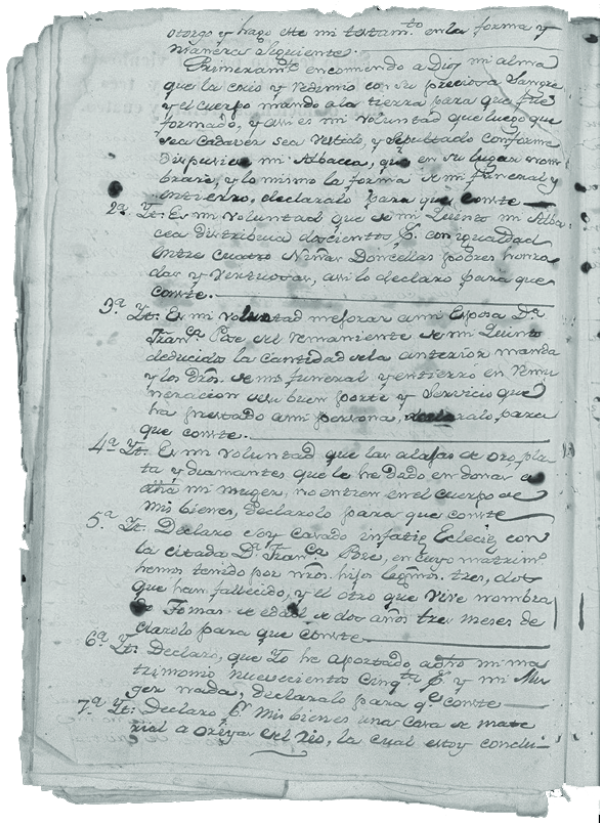 otorgo y hago este mi testam.to en la forma y
manera siguiente.
Primeram.te encomendo a Dios mi alma
que la crio y redimio con su preciosa Sangre
y el cuerpo mando a la tierra para que fue
formado, y assi es mi voluntad que luego que
sea Cadaver sea vestido, y sepultado conforme
dispusiese mi Albacea, que en su lugar nom
brare, y lo mismo la forma de mi funeral y
entierro, declaralo para que conste
2a. Yt. Es mi voluntad que de mi Quinto mi Alba
cea distribuia docientos p.s con igualdad
entre cuatro Niñas Doncellas pobres honra
das y virtuosas, assi lo declaro para que
conste.
3a. Yt. Es mi voluntad mejorar a mi Esposa D.a
Fran.ca Pose del remaniente de mi Quinto
deducido la cantidad de la anterior manda
y los dros. de mi funeral y entierro en remu
neracion de su buen porte y servicio que
ha prestado a mi persona, declaralo, para
que conste.
4a. Yt. Es mi voluntad que las alajas de oro, pla
ta y diamantes que le he dado en donas a
dha mi muger, no entren en el cuerpo de
mis bienes, declarolo para que conste
5a. Yt. Declaro soy casado infatie Eclecie con
la citada D.a Fran.ca Pose, en cuyo matrim.o
hemos tenido por nros. hijos legmos. tres, dos
que han fallecido, y el otro que vive nombra
do Tomas de edad de dos años tres meses de
clarolo para que conste
6a. Yt. Declaro, que Yo he aportado a dho mi ma
trimonio nuevecientos cinq.ta p.s y mi Mu
ger nada, declaralo para q.e conste
7a. Yt. Declaro p.r Mis bienes una Casa de mate
rial a oreya del Rio, la cual estoy conclu-